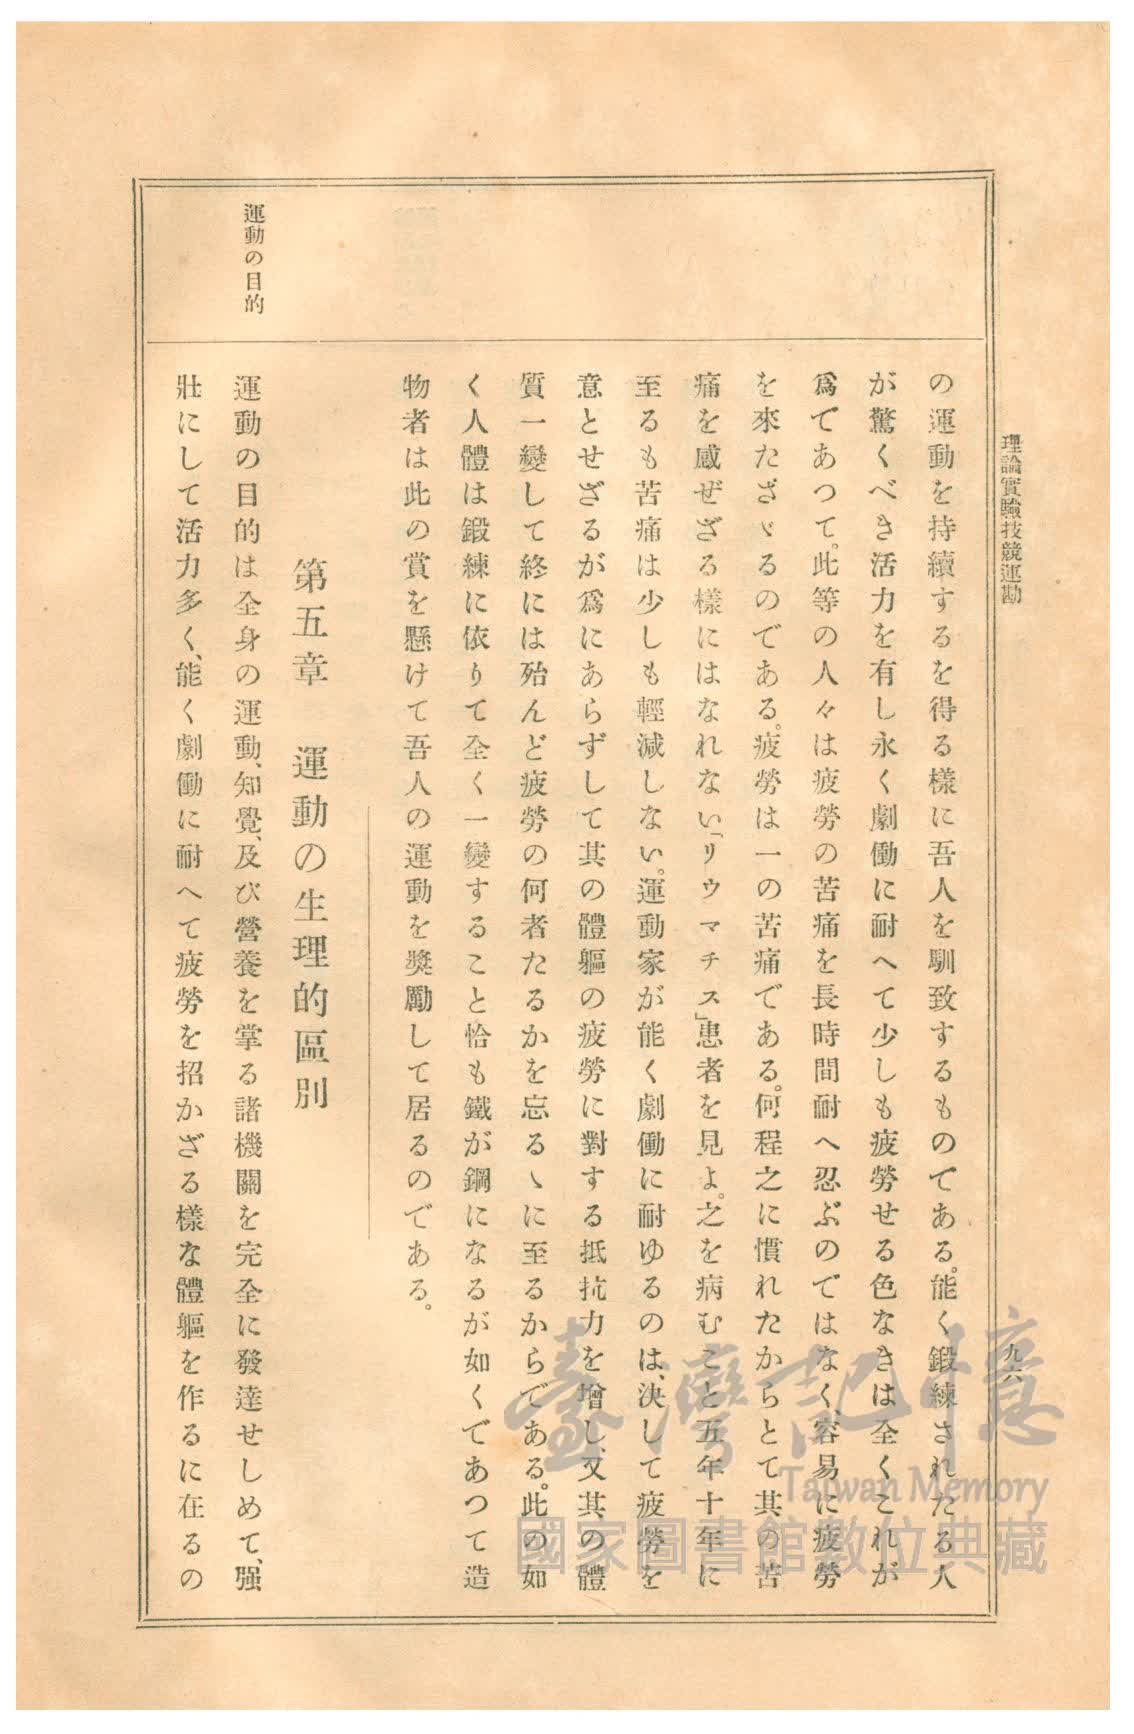 理論實驗技競運動
九六
の運動を持續するを得る樣に吾人を馴致するものである。能く鍛練されたる人
が驚くべき活力を有し永く劇働に耐へて少しも疲勞せる色なきは全くこれが
爲であつて。此等の人々は疲勞の苦痛を長時間耐へ忍ぶのではなく、容易に疲勞
を來たさゞるのである。疲勞は一の苦痛である。何程之に慣れたからとて其の苦
痛を感ぜざる樣にはなれない「リウマチス」患者を見よ。之を病むこと五年十年に
至るも苦痛は少しも輕減しない。運動家が能く劇働に耐ゆるのは、決して疲勞を
意とせざるが爲にあらずして其の體軀の疲勞に對する抵抗力を增し、又其の體
質一變して終には殆んど疲勞の何者たるかを忘るゝに至るからである。此の如
く人體は鍛練に依りて全く一變すること恰も鐵が鋼になるが如くであつて造
物者は此の賞を懸けて吾人の運動を奬勵して居るのである。
第五章　運動の生理的區別
運動の目的
運動の目的は全身の運動、知覺、及び營養を掌る諸機關を完全に發達せしめて、强
壯にして活力多く、能く劇働に耐へて疲勞を招かざる樣な體軀を作るに在るの
臺灣記憶
Taiwan Memory
國家圖書館數位典藏